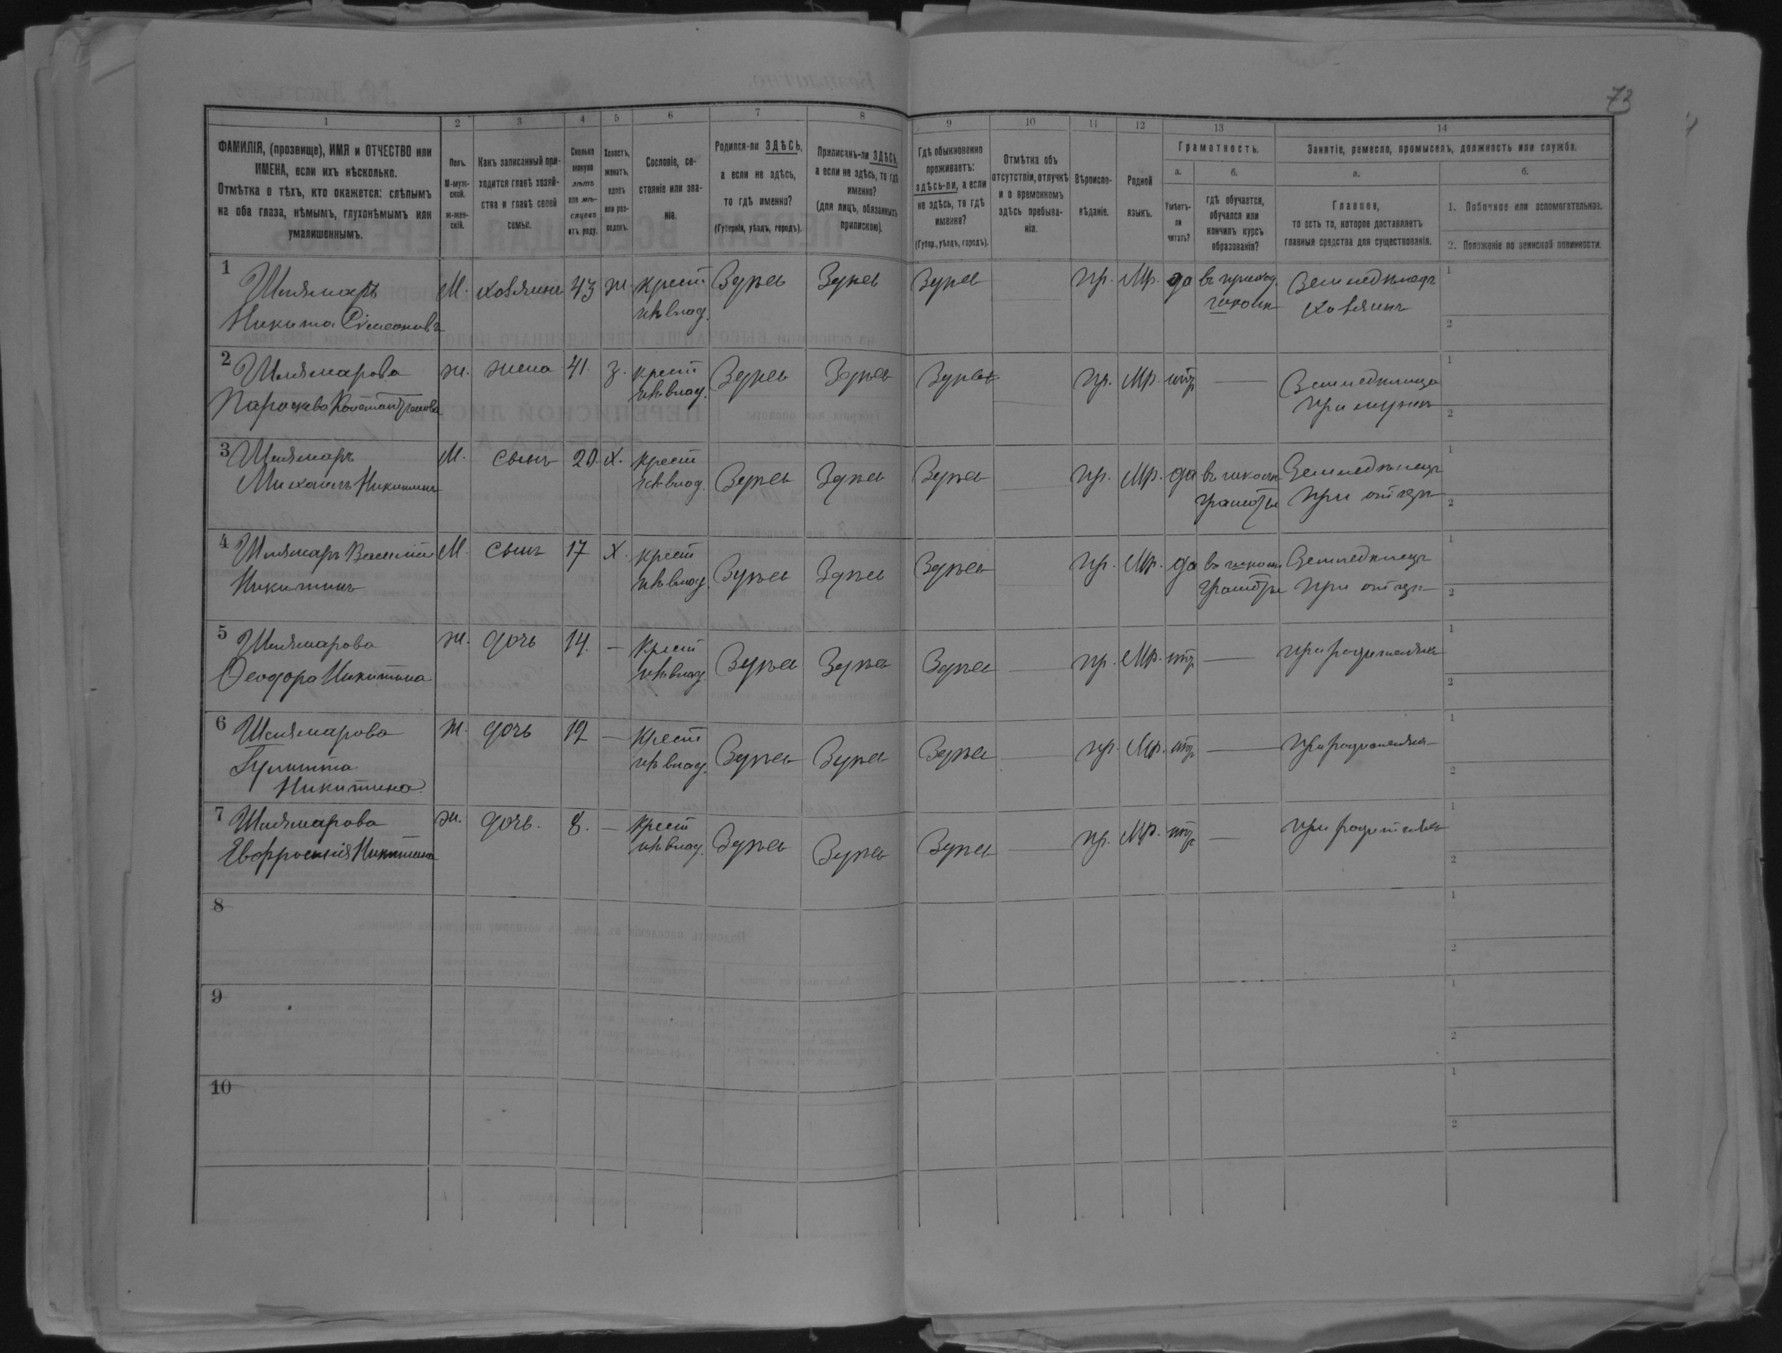 73
1 2 3 4 5 6 7 8 9 10 11 12 13 14
ФАМИЛІЯ, (прозвище), ИМЯ и ОТЧЕСТВО или
ИМЕНА, если ихъ нѣсколько.
Отмѣтка о тѣхъ, кто окажется: слѣпымъ
на оба глаза, нѣмымъ, глухонѣмымъ или
умалишеннымъ.
Полъ.
М-муж-
ской.
ж-жен-
скій.
Какъ записанный при-
ходится главѣ хозяй-
ства и главѣ своей
семьи.
Сколько
минуло
лѣтъ
или мѣ-
сяцевъ
отъ роду.
Холостъ,
женатъ,
вдовъ
или раз-
веденъ.
Сословіе, со-
стояніе или зва-
ніе.
Родился-ли ЗДѢСЬ,
а если не здѣсь,
то гдѣ именно?
(Губернія, уѣздъ, городъ).
Приписанъ-ли ЗДѢСЬ,
а если не здѣсь, то гдѣ
именно?
(для лицъ, обязанныхъ
припискою).
Гдѣ обыкновенно
проживаетъ:
здѣсь-ли, а если
не здѣсь, то гдѣ
именно?
(Губер., уѣздъ, городъ).
Отмѣтка объ
отсутствіи, отлучкѣ
и о временномъ
здѣсь пребыва-
ніи.
Вѣроиспо-
вѣданіе.
Родной
языкъ.
Грамотность.
а.
Умѣетъ-
ли
читать?
б.
гдѣ обучается,
обучался или
кончилъ курсъ
образованія?
Занятіе, ремесло, промыселъ, должность или служба.
а.
Главное,
то есть то, которое доставляетъ
главныя средства для существованія.
б.
1. Побочное или вспомогательное.
2. Положеніе по воинской повинности.
1
Никита Симеоновъ
М. хозяинъ 43 ж. крест Здѣсь Здѣсь Здѣсь пр. Мр. да въ приход.
школѣ
Земледѣлецъ
хозяинъ
1
2
2
жена 41. з. крест Здѣсь Здѣсь Здѣсь пр. Мр. нѣтъ
Земледѣлица
при мужѣ
1
2
3
Михаилъ Никитинъ
М. сынъ 20 х. крест Здѣсь Здѣсь Здѣсь пр. Мр. да въ школѣ
грамоты
Земледѣлецъ
при отцѣ
1
2
4
Василій
Никитинъ
М. сынъ 17 х. крест Здѣсь Здѣсь Здѣсь пр. Мр. да въ школѣ
грамоты
Земледѣлецъ
при отцѣ
1
2
5
Феодора Никитина
ж. дочь 14. — Крест Здѣсь Здѣсь Здѣсь пр. Мр. нѣтъ
при родителяхъ
1
2
6
Никитина
ж. дочь 12 — Крест Здѣсь Здѣсь Здѣсь пр. Мр. нѣтъ
при родителяхъ
1
2
7
Евфросинія Никитина
ж. дочь. 8. — Крест Здѣсь Здѣсь Здѣсь пр. Мр. нѣтъ
при родителяхъ
1
2
8
1
2
9
1
2
10
1
2